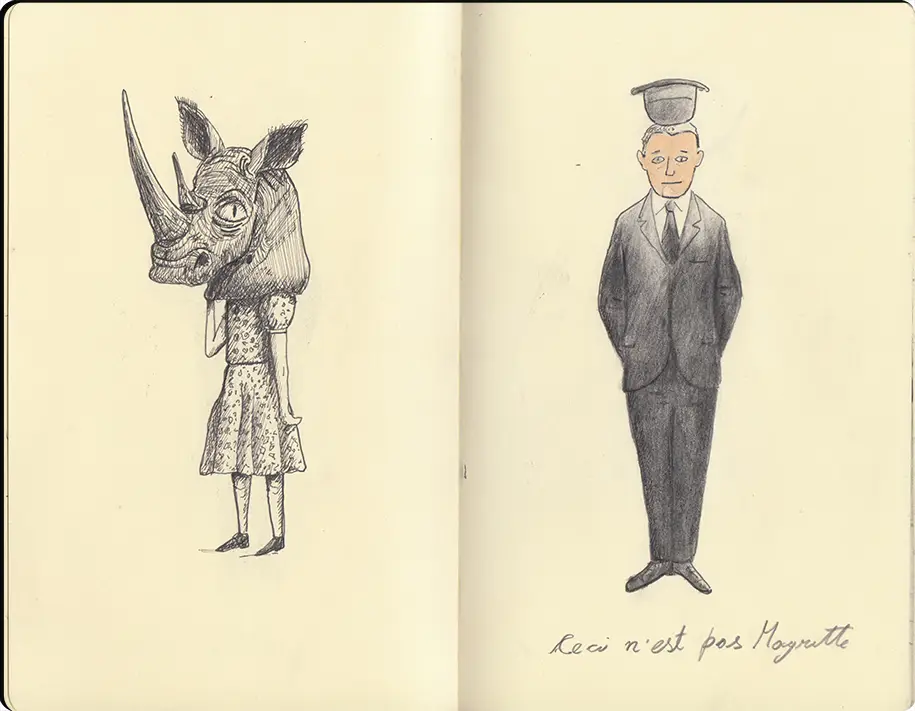 Ceci n'est pas Magritte